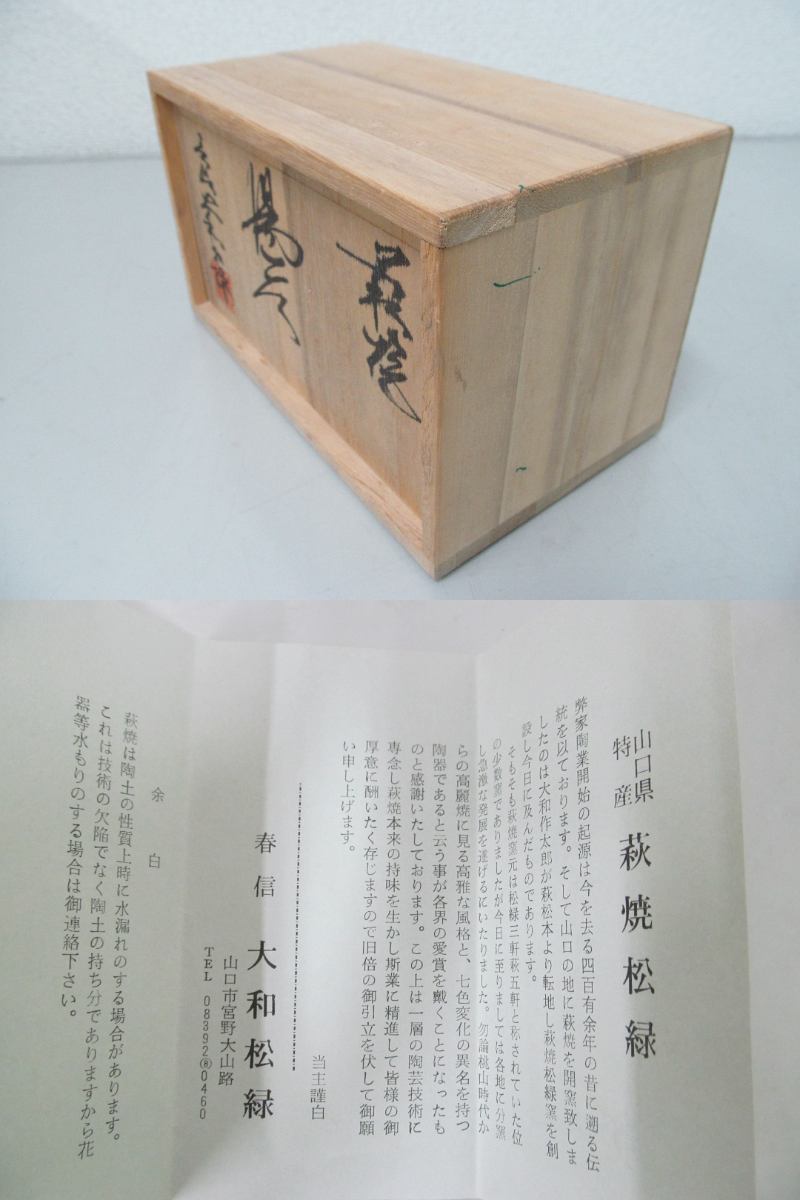 萩焼
湯呑
山口県
特産
萩焼松緑
弊家陶業開始の起源は今を去る四百有余年の昔に遡る伝
統を以ております。そして山口の地に萩焼を開窯致しま
したのは大和作太郎が萩松本より転地し萩焼松緑窯を創
設し今日に及んだものであります。
そもそも萩焼窯元は松緑三軒萩五軒と称されていた位
の少数窯でありましたが今日に至りましては各地に分窯
し急激な発展を遂げるにいたりました。勿論桃山時代か
らの高麗焼に見る高雅な風格と、七色変化の異名を持つ
陶器であると云う事が各界の愛賞を戴くことになったも
のと感謝いたしております。この上は一層の陶芸技術に
専念し萩焼本来の持味を生かし斯業に精進して皆様の御
厚意に酬いたく存じますので旧倍の御引立を伏して御願
い申し上げます。
当主謹白
春信 大和松緑
山口市宮野大山路
TEL 08392⑧0460
余白
萩焼は陶土の性質上時に水漏れのする場合があります。
これは技術の欠陥でなく陶土の持ち分でありますから花
器等水もりのする場合は御連絡下さい。